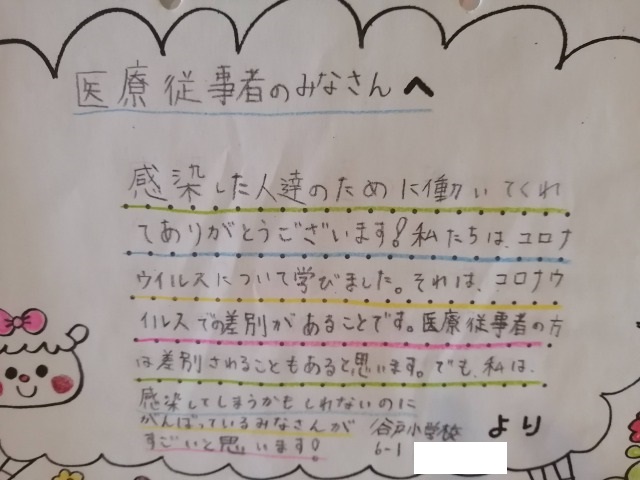 医療従事者のみなさんへ
感染した人達のために働いてくれ
てありがとうございます!私たちは、コロナ
ウイルスについて学びました。それは、コロナウ
イルスでの差別があることです。医療従事者の方
は差別されることもあると思います。でも、私は、
感染してしまうかもしれないのに
がんばっているみなさんが
すごいと思います!
谷戸小学校
6-1
より